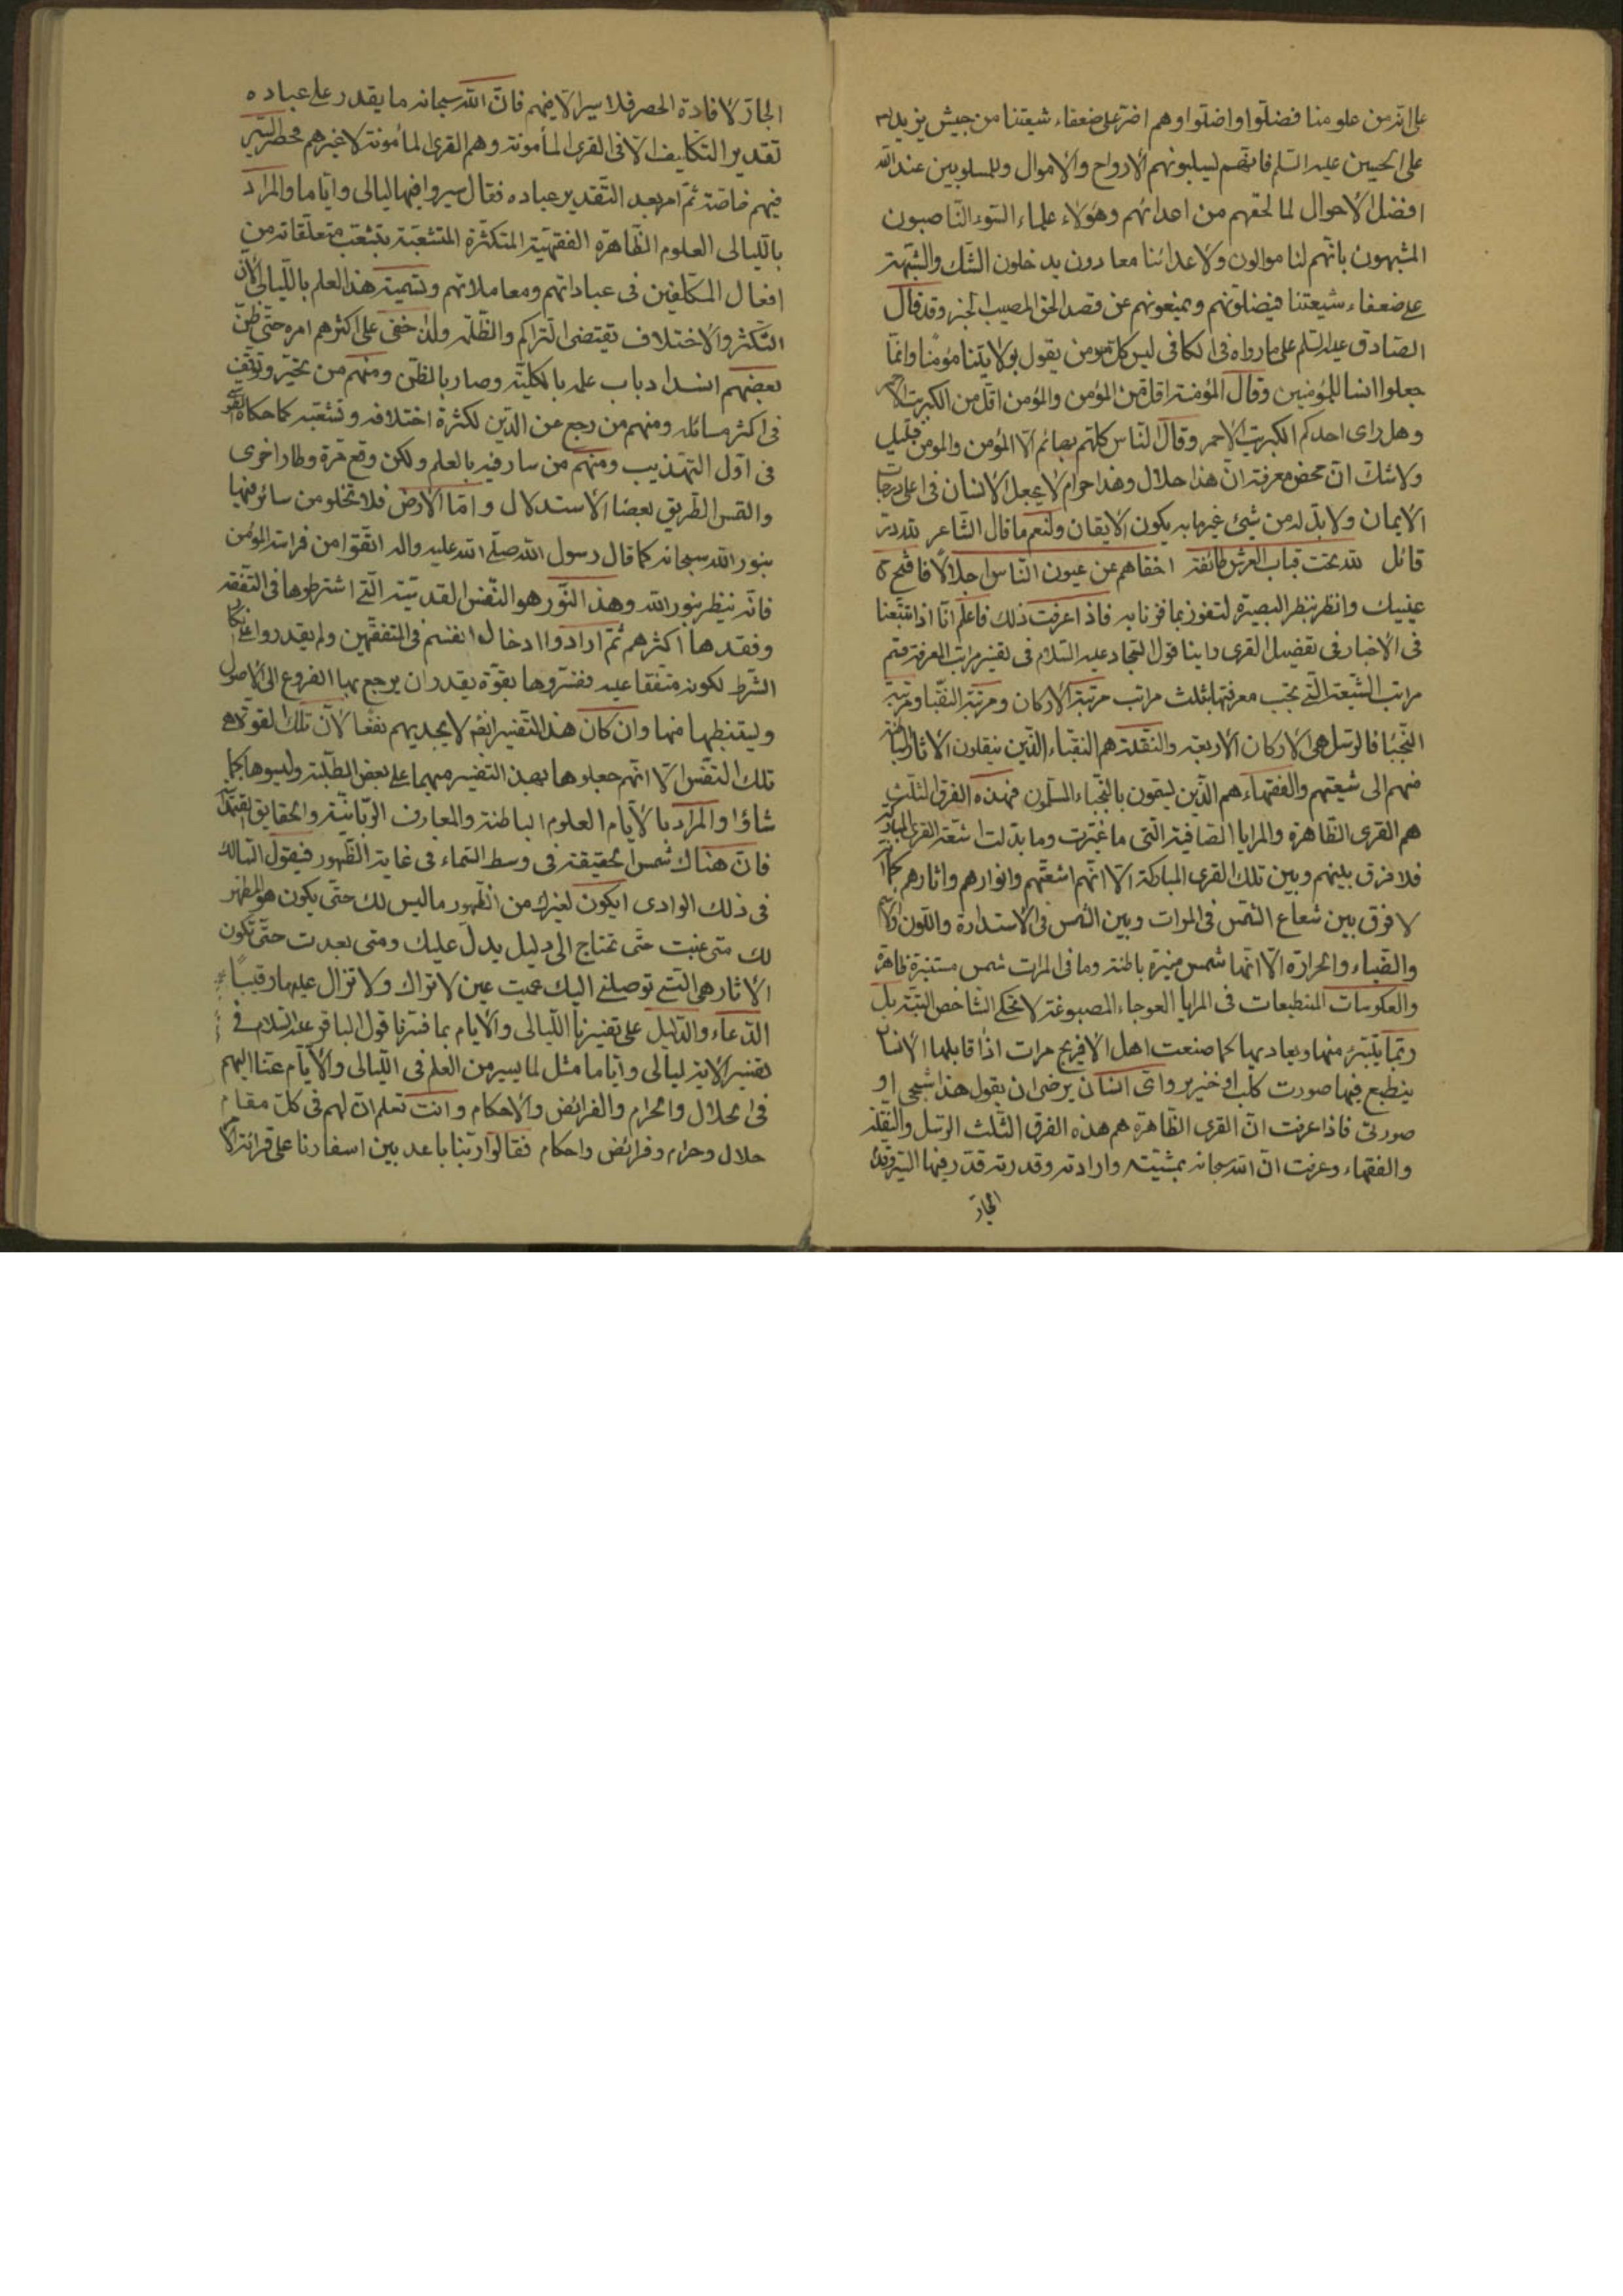 على انه من علومنا فضلّوا واضلّوا وهم اضرّ على ضعفاء شيعتنا من جيش يزيد
على الحسين عليه السلم فانهم ليسلبونهم الارواح والاموال وللمسلوبين عند الله
افضل الاحوال لما لحقهم من اعدائهم وهؤلاء علماء السّوء النّاصبون
المشبهون بانّهم لنا موالون ولاعدائنا معادون يدخلون الشّك والشّبهة
على ضعفاء شيعتنا فيضلّونهم ويمنعونهم عن قصد الحق المصيب الخبر وقد قال
الصّادق عليه السّلم على ما رواه فى الكافى ليس كل من يقول بولايتنا مؤمنا وانّما
جعلوا انسا للمؤمنين وقال المؤمنة اقل من المؤمن والمؤمن اقلّ من الكبريت الاحمر
وهل راى احدكم الكبريت الاحمر وقال النّاس كلّهم بهائم الّا المؤمن والمؤمن قليل
ولا شك انّ محض معرفة انّ هذا حلال وهذا حرام لا يجعل الانسان فى اعلى درجات
الايمان ولا بدّ له من شئ غيرها به يكون الايقان ولنعم ما قال الشّاعر لله درّ
قائل لله تحت قباب العرش طائفة اخفاهم عن عيون النّاس اجلالاً فافتح
عينيك وانظر بنظر البصيرة لتفوز بما فزنا به فاذا عرفت ذلك فاعلم انّا اذا تتبّعنا
فى الاخبار فى تفضيل القرى راينا قول السّجاد عليه السّلام فى تفسير مراتب المعرفة قسم
مراتب الشّيعة الّتى يجب معرفتها بثلث مراتب مرتبة الاركان ومرتبة النّقبا ومرتبة
النّجبا فالرّسل هى الاركان الاربعة والنّقلة هم النقباء الّذين ينقلون الاثار
منهم الى شيعتهم والفقهاء هم الّذين ليسمّون بالنّجباء المسلمون فهذه الفرق الثلث
هم القرى الظّاهرة والمرايا الصّافية الّتى ما غيّرت وما بدّلت اشعّة القرى المباركة
فلا فرق بينهم وبين تلك القرى المباركة الّا انّهم اشعّتهم وانوارهم واثارهم كما
لا فرق بين شعاع الشّمس فى المرات وبين الشّمس فى الاستدارة واللّون
والضّياء والحرارة الّا انّها شمس منيرة باطنة وما فى المرات شمس مستنيرة ظاهرة
والعكوسات المنطبعات فى المرايا العوجاء المصبوغة لا تحكى الشّاخص البتّة بل
ربّما يتبرّء منها ويعاديها كما صنعت اهل الافريج مرات اذا قابلها الانسان
ينطبع فيها صورت كلب او خنزير واىّ انسان يرضى ان يقول هذا شبحى او
صورتى فاذا عرفت انّ القرى الظّاهرة هم هذه الفرق الثّلث الرّسل والنّقلة
والفقهاء وعرفت انّ الله سبحانه بمشيّته وارادته وقدرته قدّر فيها السّير وقدّم
الجارّ
الجارّ لافادة الحصر فلا سير الّا فيهم فانّ الله سبحانه ما يقدر على عباده
تقدير التّكليف الّا فى القرى المأمونة وهم القرى المأمونة لا غيرهم فحصر السّير
فيهم خاصّة ثمّ امر بعد التّقدير عباده فقال سيروا فيها ليالى وايّاما والمراد
باللّيالى العلوم الظّاهرة الفقهيّة المتكثّرة المتشعّبة بتشعّب متعلّقاته من
افعال المكلّفين فى عباداتهم ومعاملاتهم وتسمية هذا العلم باللّيالى لانّ
التّكثّر والاختلاف يقتضى التراكم والظّلمة ولذا خفى على اكثرهم امره حتّى ظنّ
بعضهم انسداد باب علمه بالكلّيّة وصار بالظّن ومنهم من تحيّر وتوقّف
فى اكثر مسائله ومنهم من رجع عن الدّين لكثرة اختلافه وتشعّبه كما حكاه
فى اوّل التّهذيب ومنهم من سار فيه بالعلم ولكن وقع مرّة وطار اخرى
والتمس الطّريق بعصا الاستدلال وامّا الارض فلا تخلو من سائر فيها
بنور الله سبحانه كما قال رسول الله صلّى الله عليه واله اتّقوا من فراسة المؤمن
فانّه ينظر بنور الله وهذا النّور هو النّفس القدسيّة الّتى اشترطوها فى التّفقّه
وفقدها اكثرهم ثمّ ارادوا ادخال انفسهم فى المتفقّهين ولم يقدروا على
الشّرط لكونه متّفقا عليه ففسّروها بقوّة يقدر ان يرجع بها الفروع الى الاصول
وليستنبطها منها وان كان هذا التّفسير ايضا لا يجديهم نفعا لانّ تلك القوّة هى
تلك النّفس الّا انّهم جعلوها بهذا التفسير مبهما على بعض الطّلبة ولبسوها كما
شاؤا والمراد بالايّام العلوم الباطنة والمعارف الرّبّانيّة والحقايق
فانّ هناك شمس الحقيقة فى وسط السّماء فى غاية الظّهور فيقول السّالك
فى ذلك الوادى ايكون لغيرك من الظّهور ما ليس لك حتّى يكون هو المظهر
لك متى غبت حتّى تحتاج الى دليل يدلّ عليك ومتى بعدت حتّى تكون
الاثار هى الّتى توصلنى اليك عميت عين لا تراك ولا تزال عليها رقيباً
الدّعاء والدّليل على تفسيرنا اللّيالى والايام بما فسّرنا قول الباقر عليه السّلام فى
تفسير الاية ليالى وايّاما مثل لما يسير من العلم فى اللّيالى والايّام عنّا اليهم
فى الحلال والحرام والفرائض والاحكام وانت تعلم انّ لهم فى كلّ مقام
حلال وحرام وفرائض واحكام فقالوا ربّنا باعد بين اسفارنا على قرائة